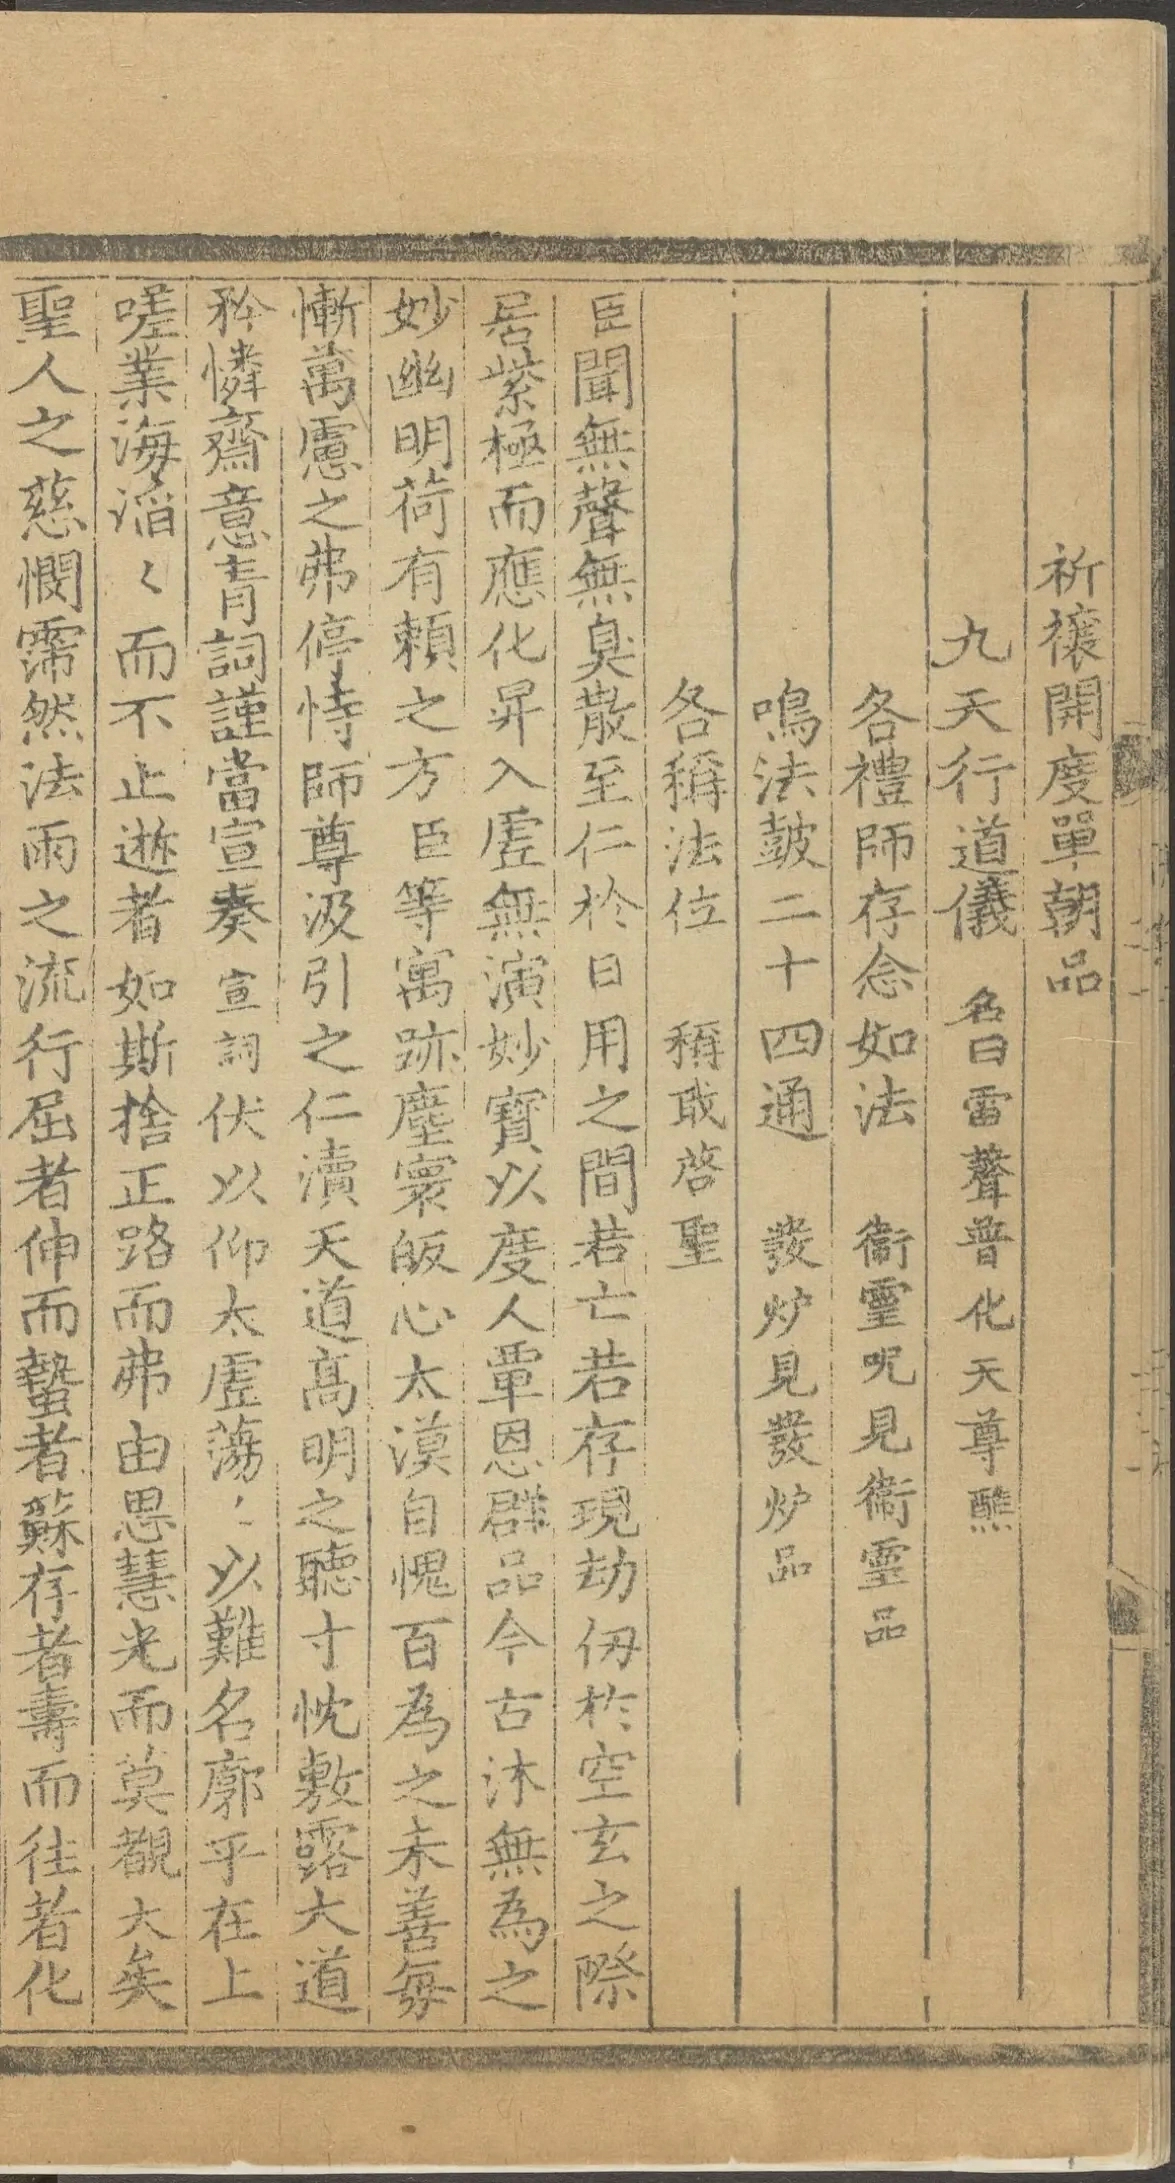 祈禳開度單朝品
九天行道儀　名曰雷聲普化天尊醮
各禮師存念如法　衞靈呪見衞靈品
鳴法皷二十四通　發炉見發炉品
各稱法位　稱㪅啓聖
臣聞無聲無臭散至仁於日用之間若亡若存現劫仞於空玄之際
居紫極而應化昇入虛無演妙寶以度人覃恩群品今古沐無為之
妙幽明荷有賴之方臣等寓跡塵寰皈心太漠自愧百為之未善每
慚萬慮之弗停恃師尊汲引之仁瀆天道高明之聽寸忱敷露大道
矜憐齋意青詞謹當宣奏宣詞伏以仰太虛蕩〻以難名廓乎在上
嗟業海滔〻而不止逝者如斯捨正路而弗由思慧光而莫覩大矣
聖人之慈憫霈然法雨之流行屈者伸而蟄者蘇存者壽而往者化